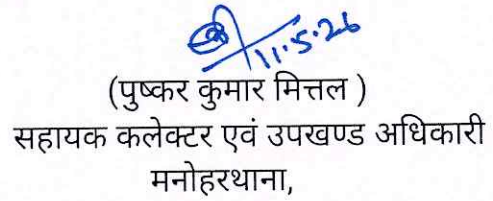 11.5.26
(पुष्कर कुमार मित्तल )
सहायक कलेक्टर एवं उपखण्ड अधिकारी
मनोहरथाना,